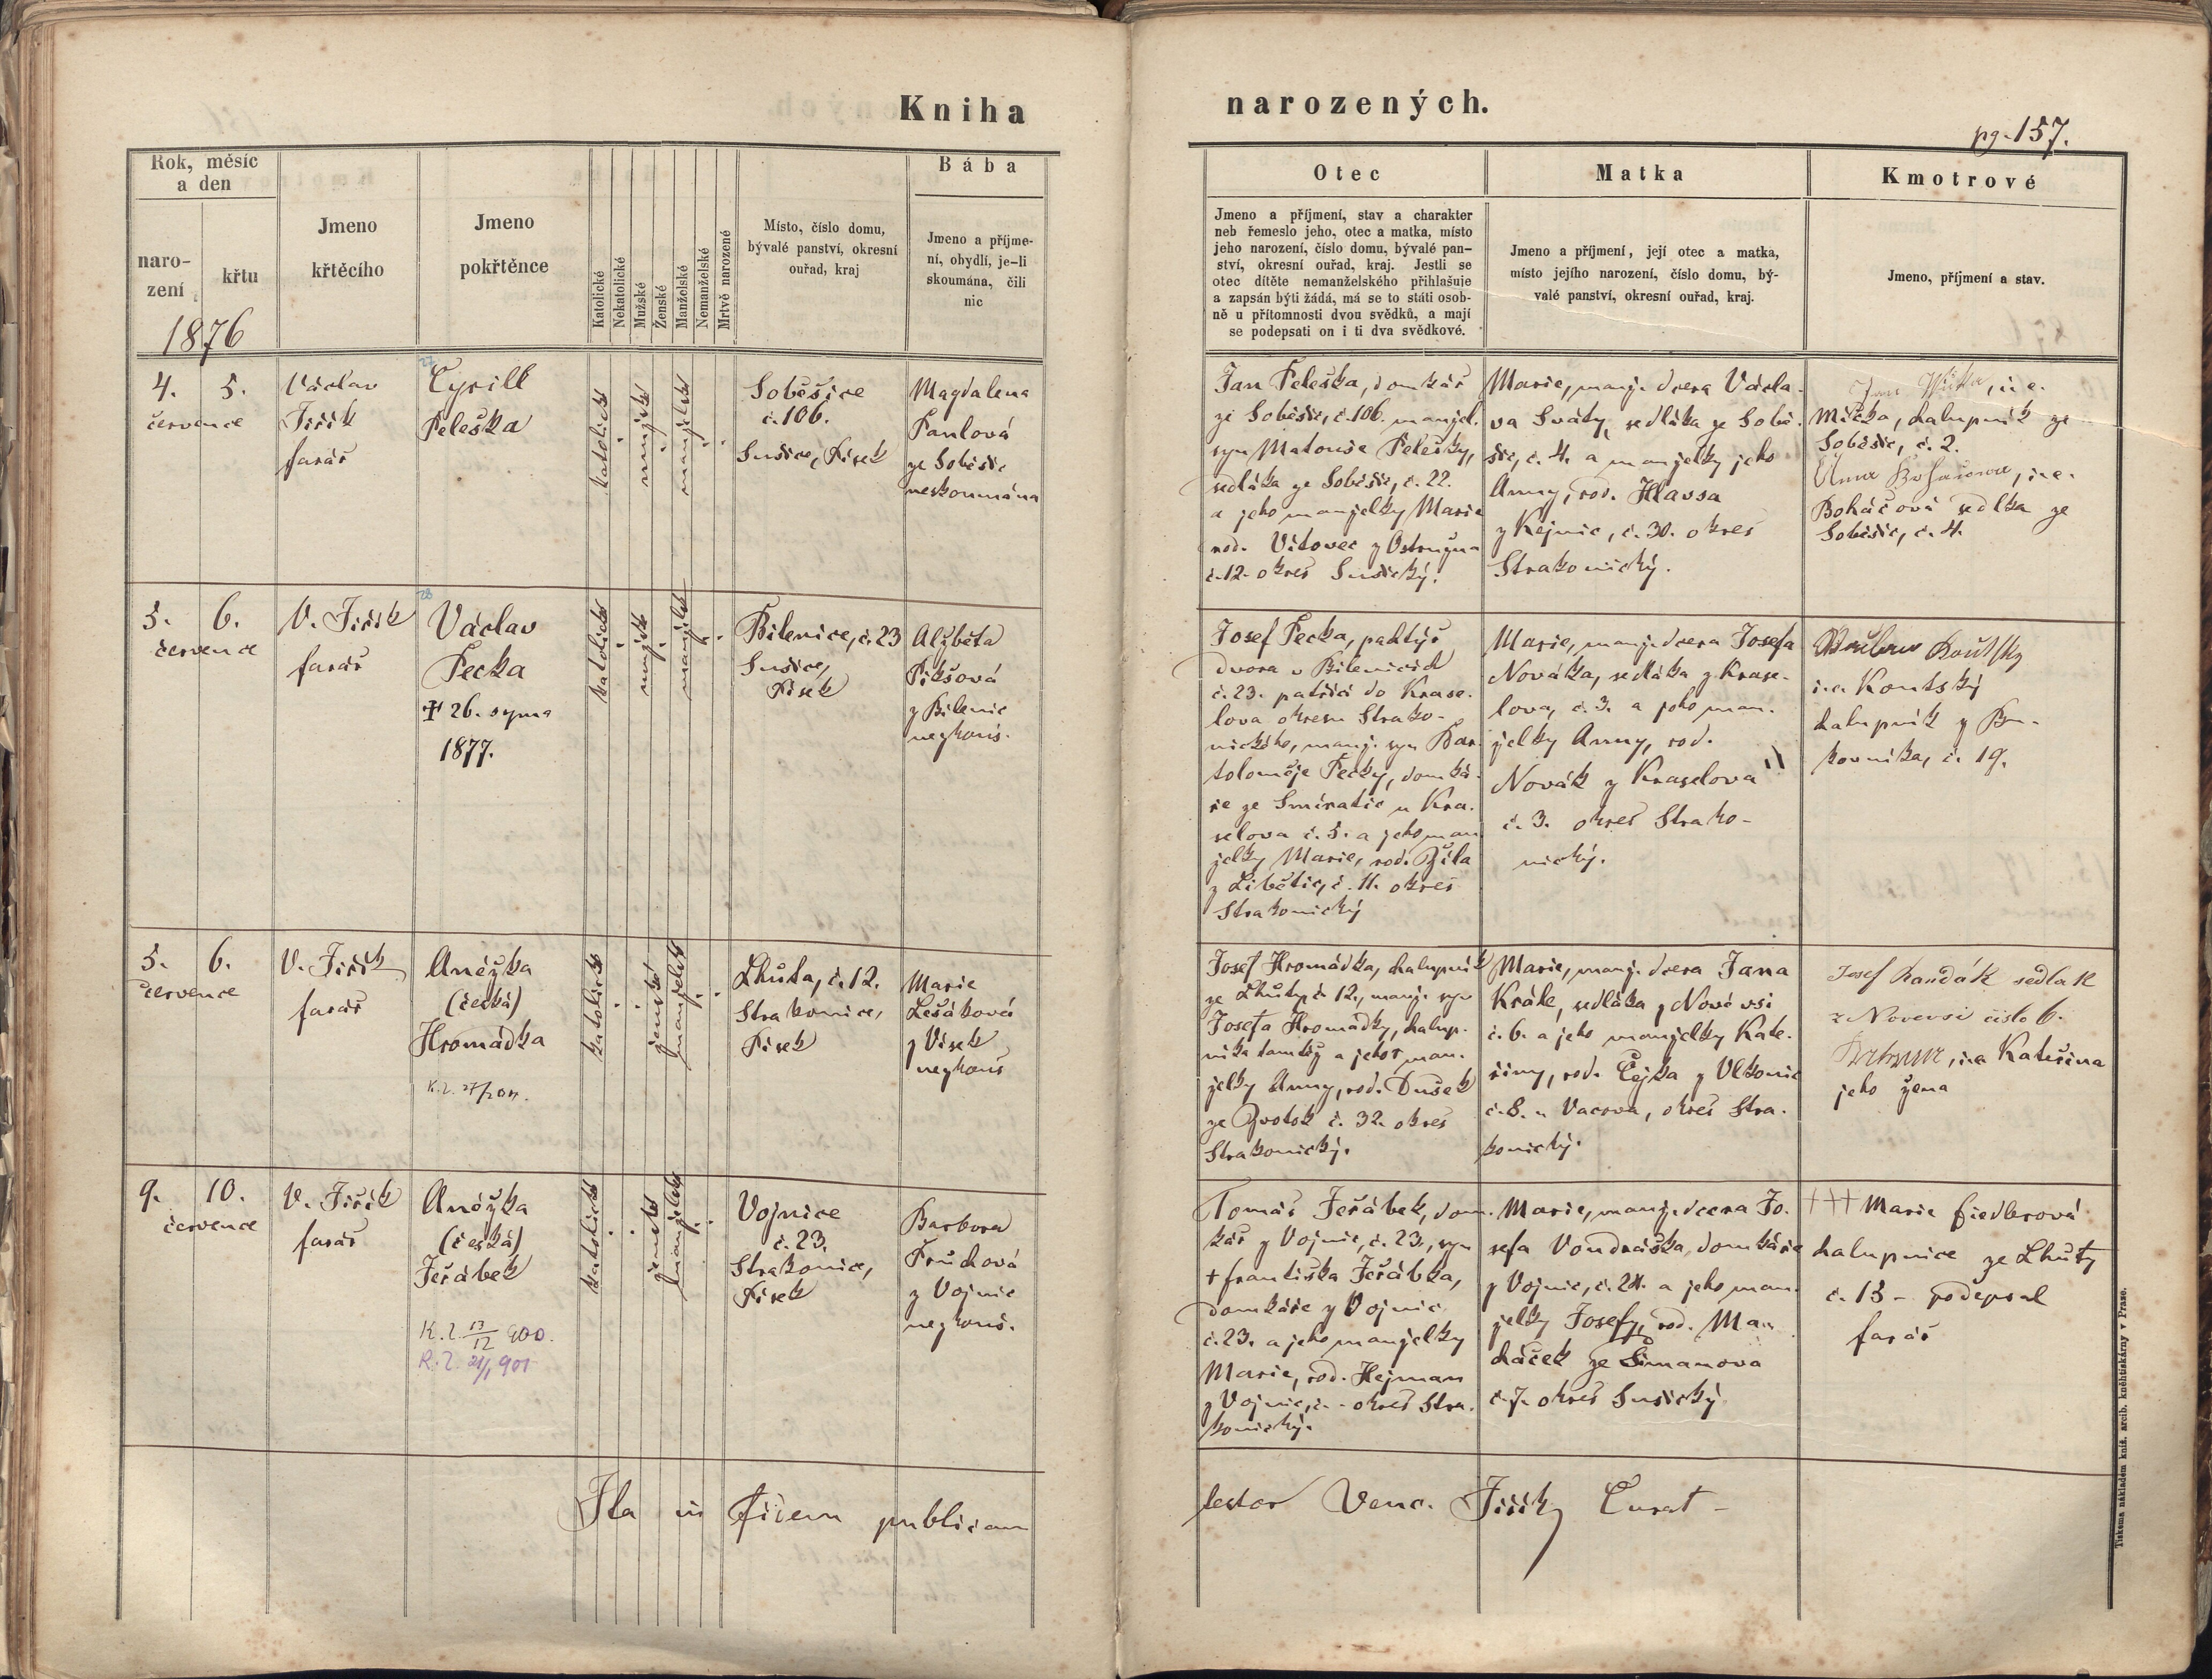 Kniha
narozených.
pg. 157.
Rok, měsíc
a den
naro-
zení
křtu
1876
Jmeno
křtěcího
Jmeno
pokřtěnce
Katolické
Nekatolické
Mužské
Ženské
Manželské
Nemanželské
Mrtvě narozené
Místo, číslo domu,
bývalé panství, okresní
ouřad, kraj
Bába
Jmeno a příjme-
ní, obydlí, je-li
skoumána, čili
nic
Otec
Jmeno a příjmení, stav a charakter
neb řemeslo jeho, otec a matka, místo
jeho narození, číslo domu, bývalé pan-
ství, okresní ouřad, kraj. Jestli se
otec dítěte nemanželského přihlašuje
a zapsán býti žádá, má se to státi osob-
ně u přítomnosti dvou svědků, a mají
se podepsati on i ti dva svědkové.
Matka
Jmeno a příjmení, její otec a matka,
místo jejího narození, číslo domu, bý-
valé panství, okresní ouřad, kraj.
Kmotrové
Jmeno, příjmení a stav.
4. 5.
července
Václav
Jiřík
farář
27
Cyrill
Peleška
katolické
mužské
manželské
Soběšice
č. 106.
Sušice, Písek
Magdalena
Panlová
ze Soběšic
neskoumána
Jan Peleška, domkář
ze Soběšic, č. 106. manžel.
syn Matouše Pelešky,
sedláka ze Soběšic, č. 22.
a jeho manželky Marie
rod. Vítovec z Ostružna
č. 12. okres Sušický.
Marie, manž. dcera Václa-
va Sváty, sedláka ze Sobě-
šic, č. 4. a manželky jeho
Anny, rod. Hlavsa
z Kejnic, č. 30. okres
Strakonický.
Jan, i. e.
Mička, chalupník ze
Soběšic, č. 2.
Anna, i. e.
Boháčová sedlka ze
Soběšic, č. 4.
5. 6.
července
V. Jiřík
farář
28
Václav
Pecka
✝ 26. srpna
1877.
katolické
mužské
manželské
Bilenice, č. 23
Sušice,
Písek
Alžběta
Pikšová
z Bilenic
nezkouš.
Josef Pecka, pachtýř
dvora v Bilenicích
č. 23. patřící do Krase-
lova okresu Strako-
nického, manž. syn Bar-
toloměje Pecky, domká-
ře ze Smiratic u Kra-
selova č. 5. a jeho man
želky Marie, rod. Bíla
z Libětic, č. 11. okres
Strakonický
Marie, manž. dcera Josefa
Nováka, sedláka z Krase-
lova, č. 3. a jeho man-
želky Anny, rod.
Novák z Kraselova
č. 3. okres Strako-
nický.
i. e. Koutský
chalupník z Bu-
kovníka, č. 19.
5. 6.
července
V. Jiřík
farář
Anéžka
(česká)
Hromádka
katolické
ženské
manželské
Lhůta, č. 12.
Strakonice,
Písek
Marie
Lešáková
z Vísek
nezkouš
Josef Hromádka, chalupník
ze Lhůty č. 12., manž. syn
Josefa Hromádky, chalup-
níka tamtéž a jehož man-
želky Anny, rod. Dušek
ze Zvotok č. 32. okres
Strakonický.
Marie, manž. dcera Jana
Krále, sedláka z Nové vsi
č. 6. a jeho manželky Kate-
řiny, rod. Čejka z Vlkonic
č. 8. u Vacova, okres Stra-
konický.
Josef Kandák sedlak
z Novevsi čislo 6.
i. e. Kateřina
jeho žena
9. 10.
července
V. Jiřík
farář
Anéžka
(česká)
Jeřábek
K. l. 13/12 900.
katolické
ženské
manželské
Vojnice
č. 23.
Strakonice,
Písek
Barbora
Průchová
z Vojnic
nezkouš.
Tomáš Jeřábek, dom-
kář z Vojnic, č. 23., syn
+ Františka Jeřábka,
domkáře z Vojnic
č. 23. a jeho manželky
Marie, rod. Hejman
z Vojnic, č. - okres Stra-
konický.
Marie, manž. dcera Jo-
sefa Vondráška, domkáře
z Vojnic, č. 24. a jeho man-
želky Josefy, rod. Ma-
cháček ze Šimanova
č. 7. okres Sušický
+++ Marie Fiedlerová
chalupnice ze Lhůty
č. 13 - podepsal
farář
Ita in fidem publicam
testor Venc. Jiřík Curat -
Tiskema nákladem kníž. arcib. kněhtiskárny v Praze.